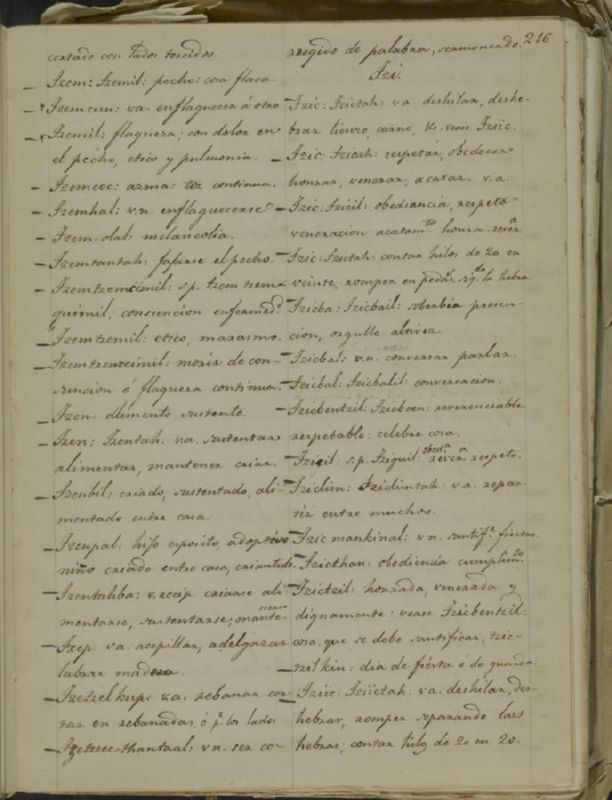 216
cortado con lados torcidos.
— Tzem: Tzemil: pecho: cosa flaca.
— Tzemcun: va. enflaquecer á otro
— Tzemil: flaqueza; con dolor en
el pecho, etico y pulmonia.
— Tzemcec: asma: toz continua.
— Tzemhal: v.n. enflaquecerse
— Tzem-olal: melancolia.
— Tzemtantah: fajarse el pecho.
— Tzemtzemcimil: s.p. tzem tzem
quimil; consuncion enfermed.
— Tzemtzemil: etico, marasmo.
— Tzemtzemcimil: morir de con-
suncion ó flaqueza continua.
— Tzen: alimento sustento.
— Tzen; Tzentah: va. sustentar
alimentar, mantener criar.
— Tzenbil: criado, sustentado, ali-
mentado entre casa.
— Tzenpal: hijo esposito, adoptivo
niño criado entre casa,
— Tzentahba: v. recip. criarse ali-
mentarse, sustentarse; mante-
nerse
— Tzep: va. acepillar, adelgazar
labrar madera
— Tzetzelkup: va. rebanar cor-
tar en rebanadas, ó pr. los lados
— vn. ser co-
rregido de palabra, sermoneado.
Tzi.
— Tzic: Tzictah: va. deshilar, deshe-
brar lienzo, carne, &. vease Tziic.
— Tzic: Tzicah: respetar, obedecer
honrar, venerar, acatar. v.a.
— Tzic: Tzicil: obediancia, respeto
veneracion acatamto. honra
— Tzic: Tzictah: contar hilos de 20 en
veinte, romper en la hebra
— Tzicba: Tzicbail: soberbia presun-
cion, orgullo altivez.
— Tzicbal: v.n. conversar parlar.
— Tzicbal: Tzicbalil: conversacion.
— Tzicbentzil: Tzicben: reverenciable
respetable: celebre cosa.
— Tzicil: s.p. Tziquil: obeda. revera. respeto.
— Tziclim: Tziclimtah: v.a. repar-
tir entre muchos.
— Tzic mankinal: v.n. santifr. fiestas
— Tzicthan: obediencia cumplimto.
— Tzictzil: honrada, venerada y
dignamente: vease Tzicbentzil:
cosa que se debe santificar; tzic-
tzel kin: dia de fiesta ó de guarda.
— Tziic: Tziictah: va. deshilar, des-
hebrar, romper separando las
hebras; contar hilos de 20 en 20.